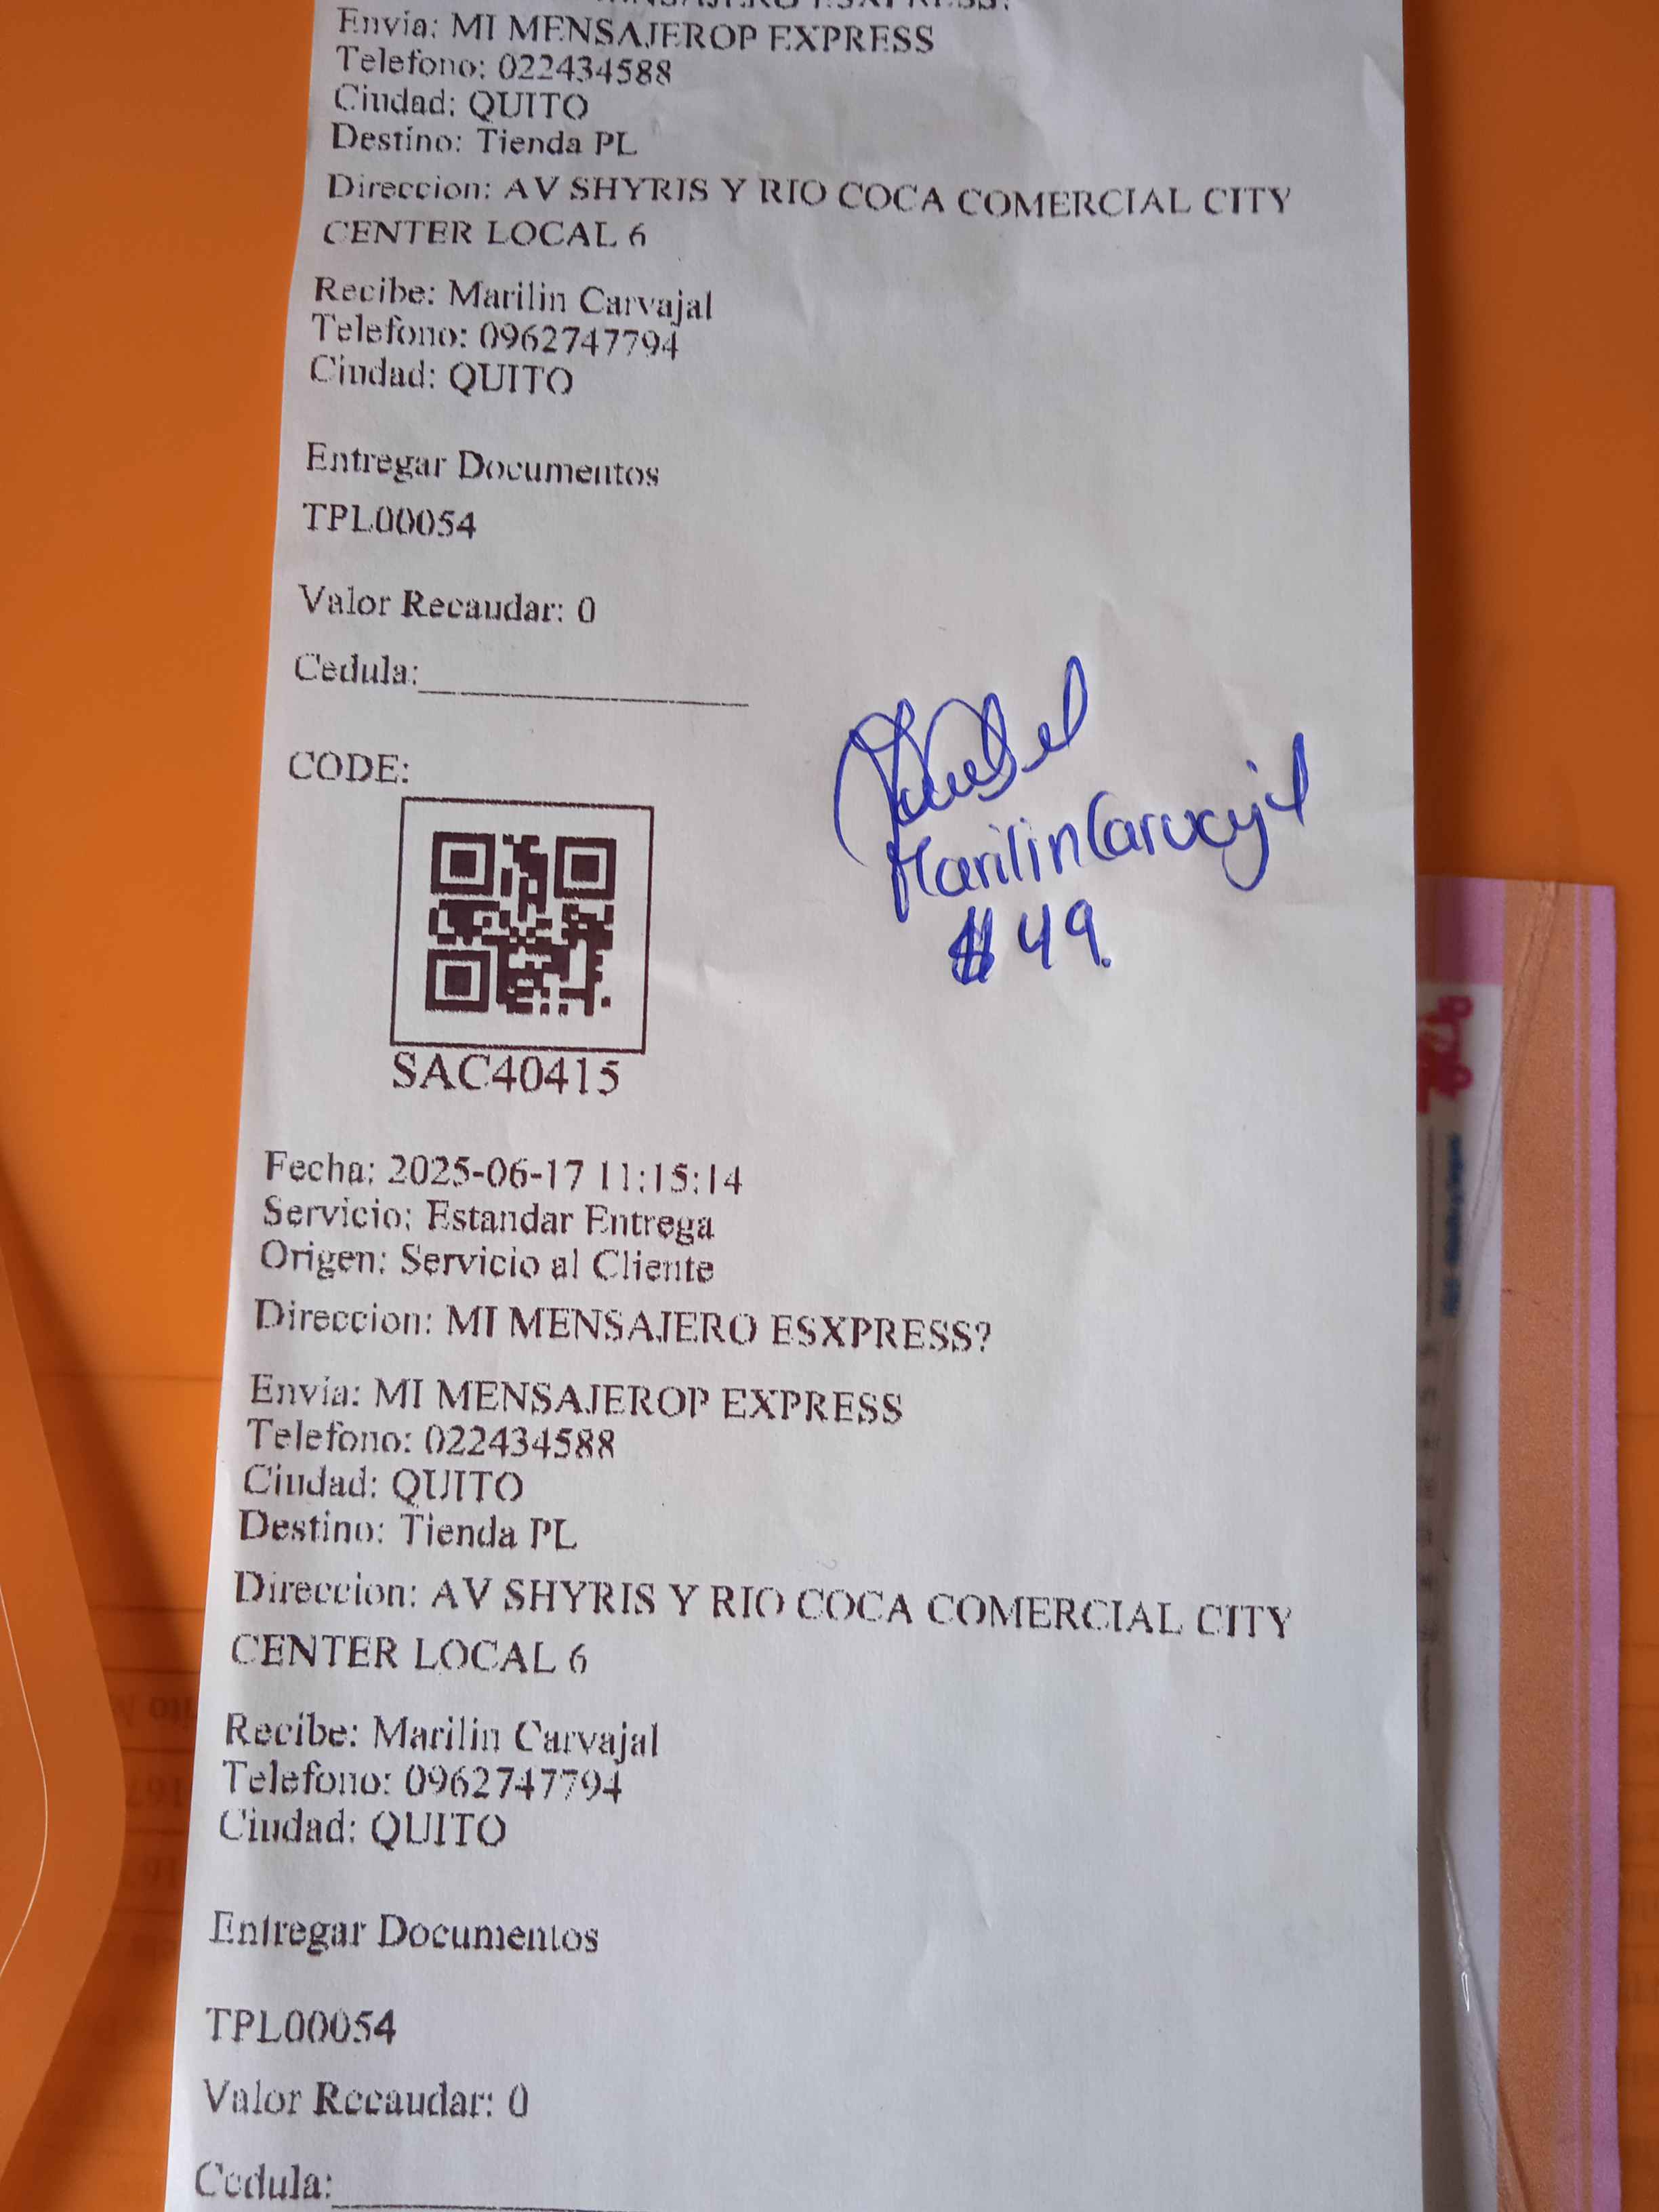 Envía: MI MENSAJEROP EXPRESS
Telefono: 022434588
Ciudad: QUITO
Destino: Tienda PL
Direccion: AV SHYRIS Y RIO COCA COMERCIAL CITY
CENTER LOCAL 6
Recibe: Marilin Carvajal
Telefono: 0962747794
Ciudad: QUITO
Entregar Documentos
TPL00054
Valor Recaudar: 0
Cedula:
CODE:
Marilin Carvajal
$ 49.
SAC40415
Fecha: 2025-06-17 11:15:14
Servicio: Estandar Entrega
Origen: Servicio al Cliente
Direccion: MI MENSAJERO ESXPRESS?
Envía: MI MENSAJEROP EXPRESS
Telefono: 022434588
Ciudad: QUITO
Destino: Tienda PL
Direccion: AV SHYRIS Y RIO COCA COMERCIAL CITY
CENTER LOCAL 6
Recibe: Marilin Carvajal
Telefono: 0962747794
Ciudad: QUITO
Entregar Documentos
TPL00054
Valor Recaudar: 0
Cedula: